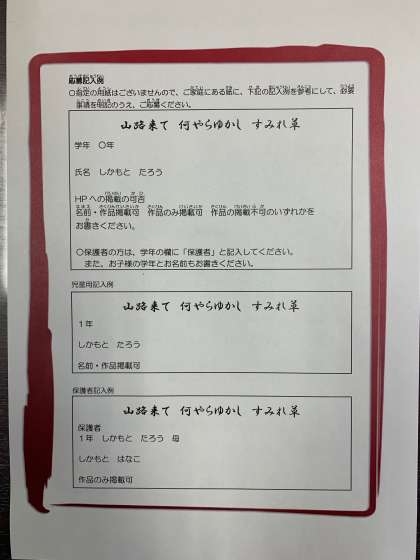 応募記入例
〇指定の用紙はございませんので、ご家庭にある紙に、下記の記入例を参考にして、必要
事項を明記のうえ、ご応募ください。
山路来て 何やらゆかし すみれ草
学年 〇年
氏名 しかもと たろう
HPへの掲載の可否
名前・作品掲載可 作品のみ掲載可 作品の掲載不可のいずれかを
お書きください。
〇保護者の方は、学年の欄に「保護者」と記入してください。
また、お子様の学年とお名前もお書きください。
児童用記入例
山路来て 何やらゆかし すみれ草
１年
しかもと たろう
名前・作品掲載可
保護者記入例
山路来て 何やらゆかし すみれ草
保護者
１年 しかもと たろう 母
しかもと はなこ
作品のみ掲載可